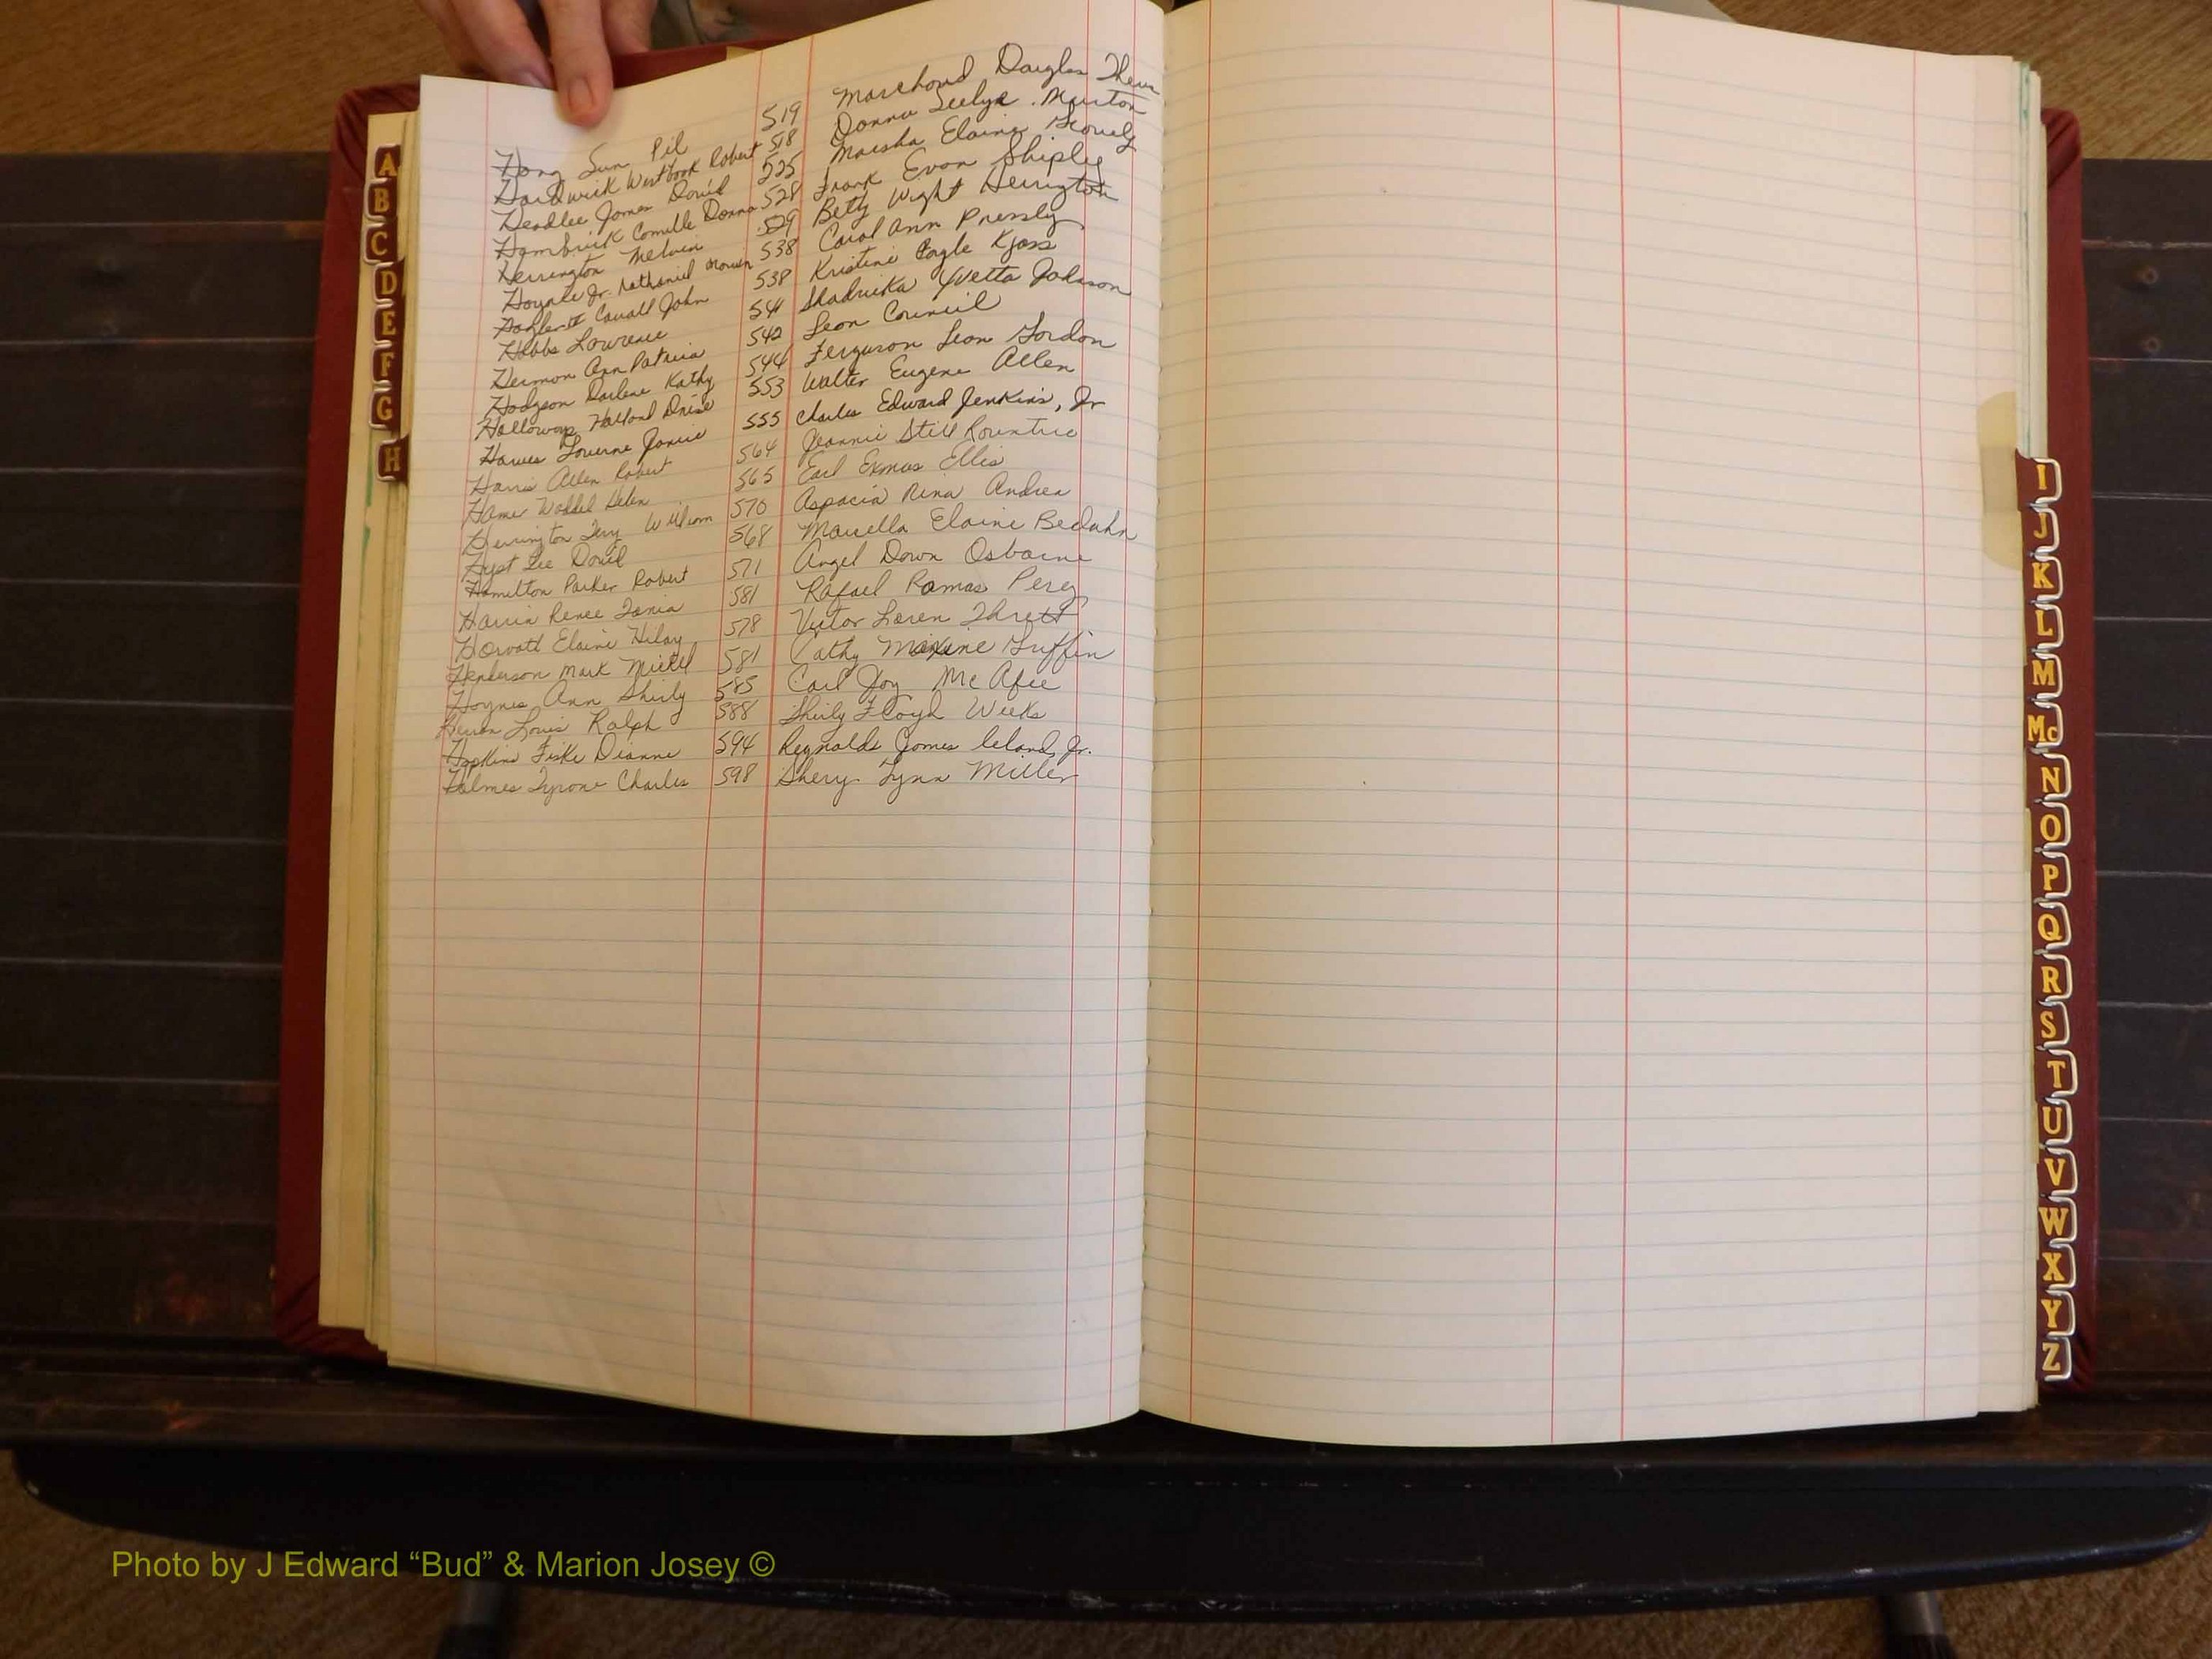 A
B
C
D
E
F
G
H
Hong Sun Pil 519 Marchand Douglas
Hardwick Westbrook Robert 518 Donna Seelye Murton
Headlee James David 525 Marsha Elaine
Hambrick Camille Donna 528 Frank Evon Shipley
Herrington Melvin 529 Betty Wight Herrington
Jr. Nathaniel 538 Carol Ann Pressly
Carroll John 538 Kristine Kjoss
Hobbs Lawrence 541 Shadricka Yvetta Johnson
Hermon Ann Patricia 542 Leon Council
Hodgson Darlene Kathy 544 Ferguson Leon Gordon
Holloway Holland 553 Walter Eugene Allen
Hawes Laverne Janie 555 Charles Edward Jenkins, Jr
Harris Allen Robert 564 Jeannie Still Rountree
Hamer Waddel Helen 565 Earl Exmus Ellis
Herrington Terry William 570 Aspacia Nina Andrea
Hyst Lee David 568 Marcella Elaine Beduhn
Hamilton Parker Robert 571 Angel Dawn Osborne
Harrin Renee Tania 581 Rafael Ramas Perez
Horvath Elaine Hilary 578 Victor Loren Thrett
Henderson Mark Mickel 581 Cathy Maxine Griffin
Haynes Ann Shirly 585 Carl Joy McAfee
Herron Louis Ralph 588 Shirly Floyd Weeks
Hopkins Fiske Dianne 594 Reynolds James Leland, Jr.
Holmes Tyrone Charles 598 Shery Lynn Miller
I
J
K
L
M
Mc
N
O
P
Q
R
S
T
U
V
W
X
Y
Z
Photo by J Edward “Bud” & Marion Josey ©